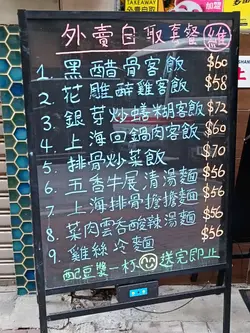 TAKEAWAY
外賣自取
外賣自取套餐
1. 黑醋骨客飯 $60
2. 花雕醉雞客飯 $58
3. 銀芽炒鱔糊客飯 $72
4. 上海回鍋肉客飯 $60
5. 排骨炒菜飯 $70
6. 五香牛展清湯麵 $56
7. 上海排骨擔擔麵 $56
8. 菜肉雲吞酸辣湯麵 $56
9. 雞絲冷麵 $56
配豆漿一杯 送完即止